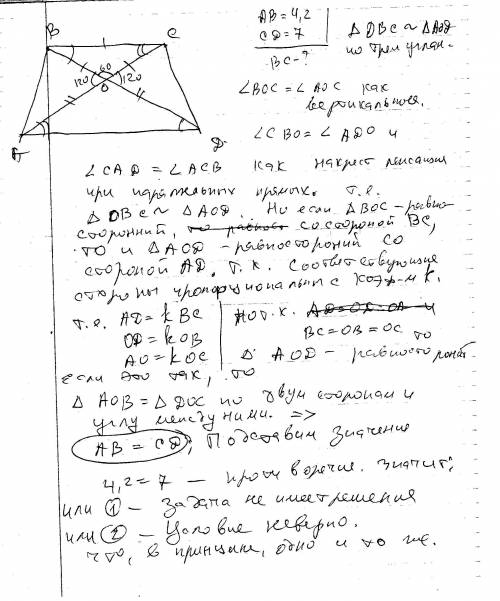 B C
60
120 120
O
A D
AB = 4,2
CD = 7
BC - ?
Δ OBC ~ Δ AOD
по трем углам.
∠BOC = ∠AOC как
вертикальные.
∠CBO = ∠ADO и
∠CAD = ∠ACB как накрест лежащие
при параллельных прямых. т.е.
Δ OBC ~ Δ AOD. Но если ΔBOC - равно-
сторонний, то равност со стороной BC,
то и Δ AOD - равносторонний со
стороной AD, т.к. соответствующие
стороны пропорциональны с коэф-м k.
т.е. AD = k BC
OD = k OB
AO = k OC
но т.к. AD = OD = OA и
BC = OB = OC то
Δ AOD - равносторонн.
если это так, то
Δ AOB = Δ DOC по двум сторонам и
углу между ними. =>
AB = CD; Подставим значения
4,2 = 7 - противоречие. значит;
или ① - задача не имеет решения
или ② - Условие неверно.
что, в принципе, одно и то же.